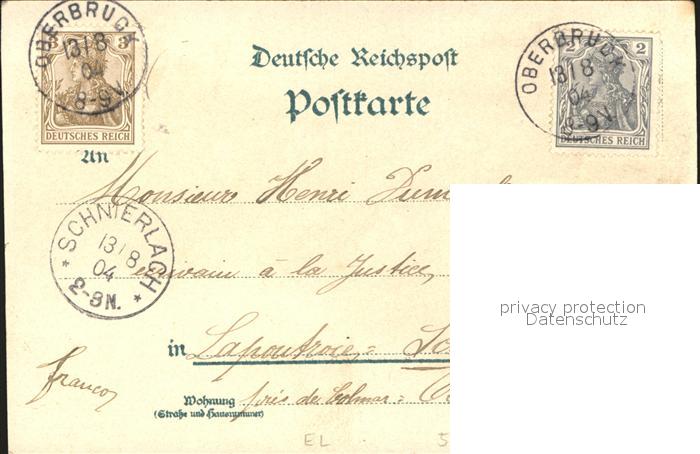 OBERBRUCK
13/8
04
8-9V.
3
DEUTSCHES REICH
Deutsche Reichspost
Postkarte
OBERBRUCK
13/8
04
8-9V.
2
DEUTSCHES REICH
An
Monsieur Henri
SCHNIERLACH
13/8
04
2-3N.
écrivain à la Justice,
in Lapoutroie =
Franco
Wohnung près de Colmar =
(Straße und Hausnummer)
EL
5
privacy protection
Datenschutz